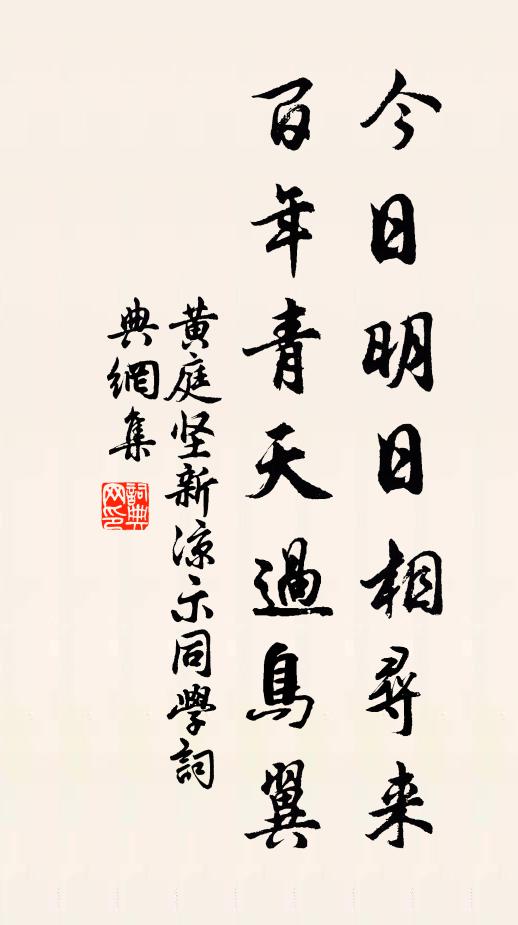 今日明日相尋来
百年青天過鳥翼
黄庭坚新涼示同學詞
典網集
詞典网印